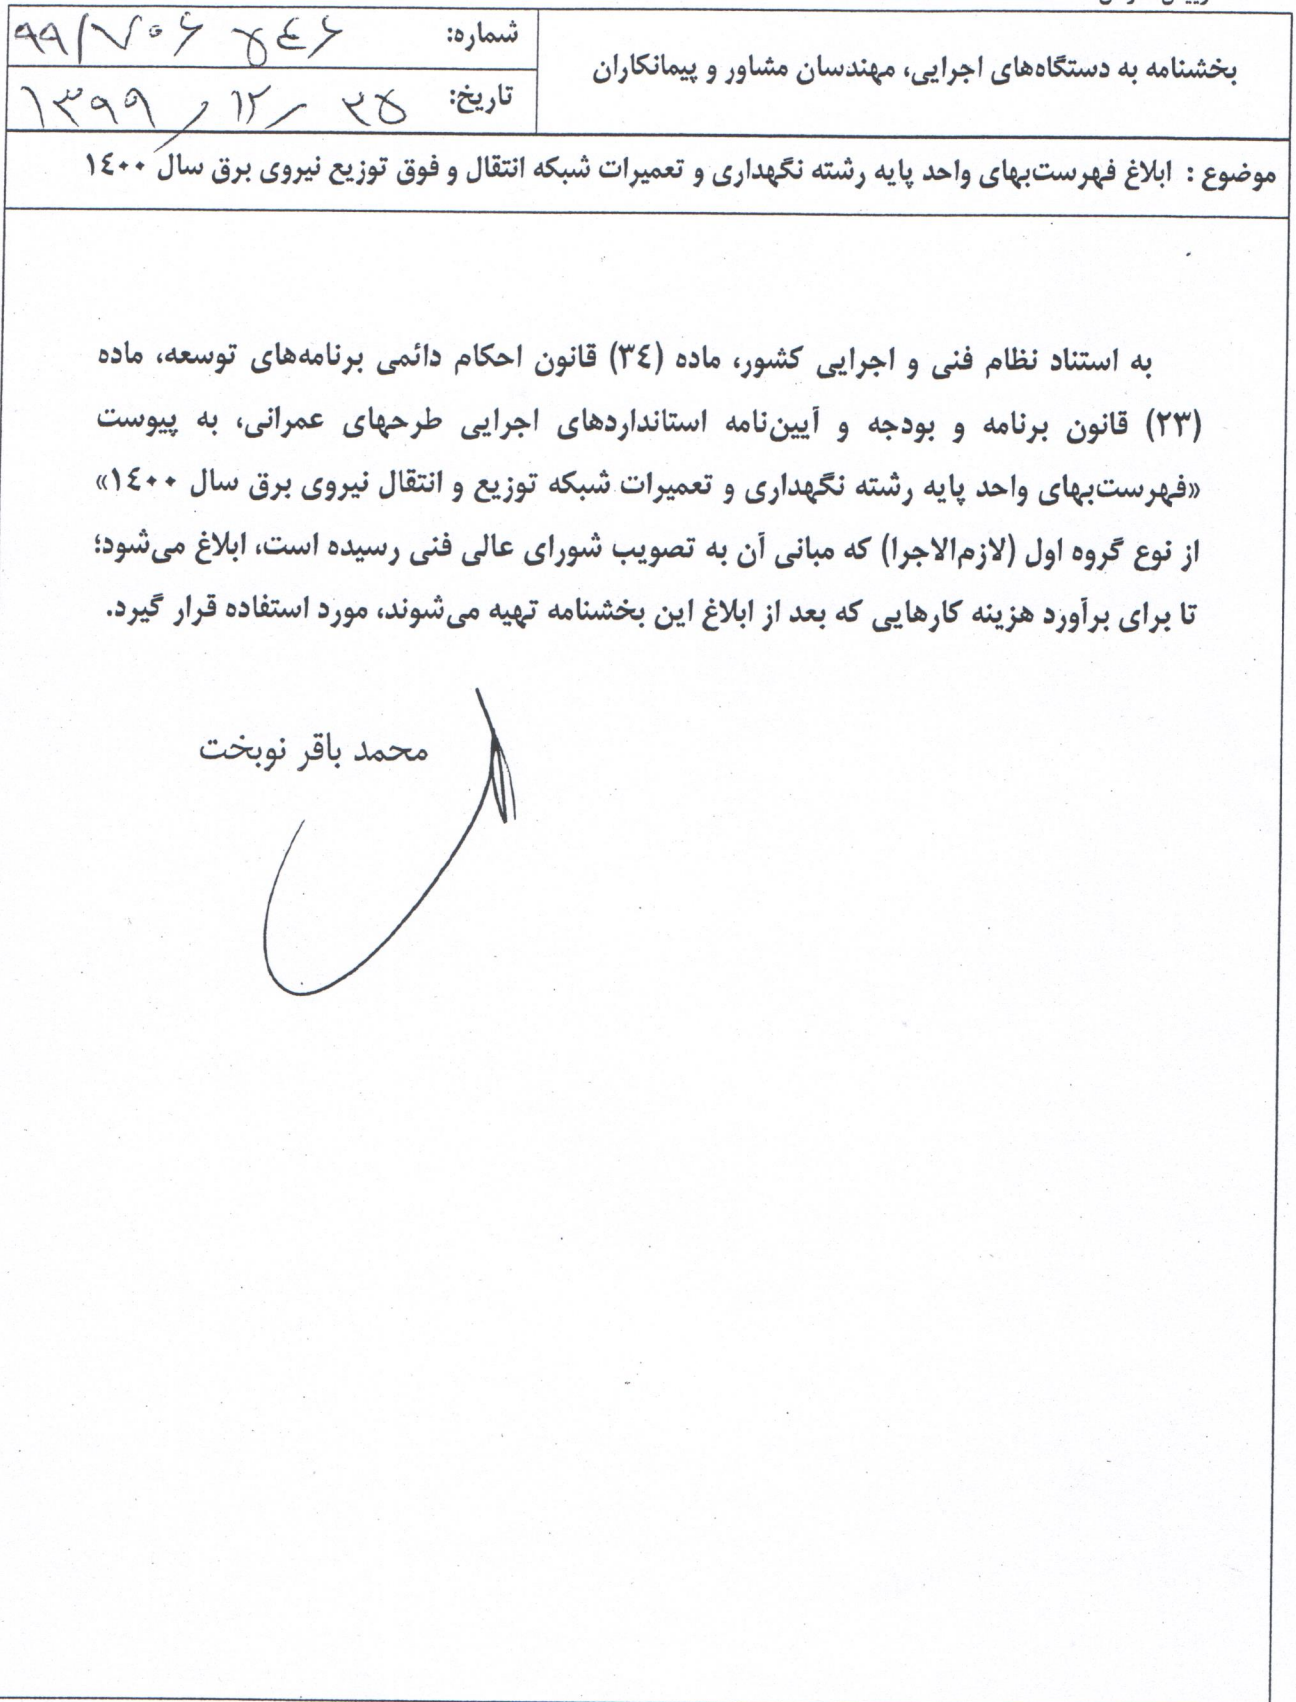 بخشنامه به دستگاه‌های اجرایی، مهندسان مشاور و پیمانکاران
شماره: ۹۹/۷۰۶۵۴۶
تاریخ: ۱۳۹۹/۱۲/۲۵
موضوع : ابلاغ فهرست‌بهای واحد پایه رشته نگهداری و تعمیرات شبکه انتقال و فوق توزیع نیروی برق سال ۱۴۰۰
به استناد نظام فنی و اجرایی کشور، ماده (۳۴) قانون احکام دائمی برنامه‌های توسعه، ماده
(۲۳) قانون برنامه و بودجه و آیین‌نامه استانداردهای اجرایی طرحهای عمرانی، به پیوست
«فهرست‌بهای واحد پایه رشته نگهداری و تعمیرات شبکه توزیع و انتقال نیروی برق سال ۱۴۰۰»
از نوع گروه اول (لازم‌الاجرا) که مبانی آن به تصویب شورای عالی فنی رسیده است، ابلاغ می‌شود؛
تا برای برآورد هزینه کارهایی که بعد از ابلاغ این بخشنامه تهیه می‌شوند، مورد استفاده قرار گیرد.
محمد باقر نوبخت